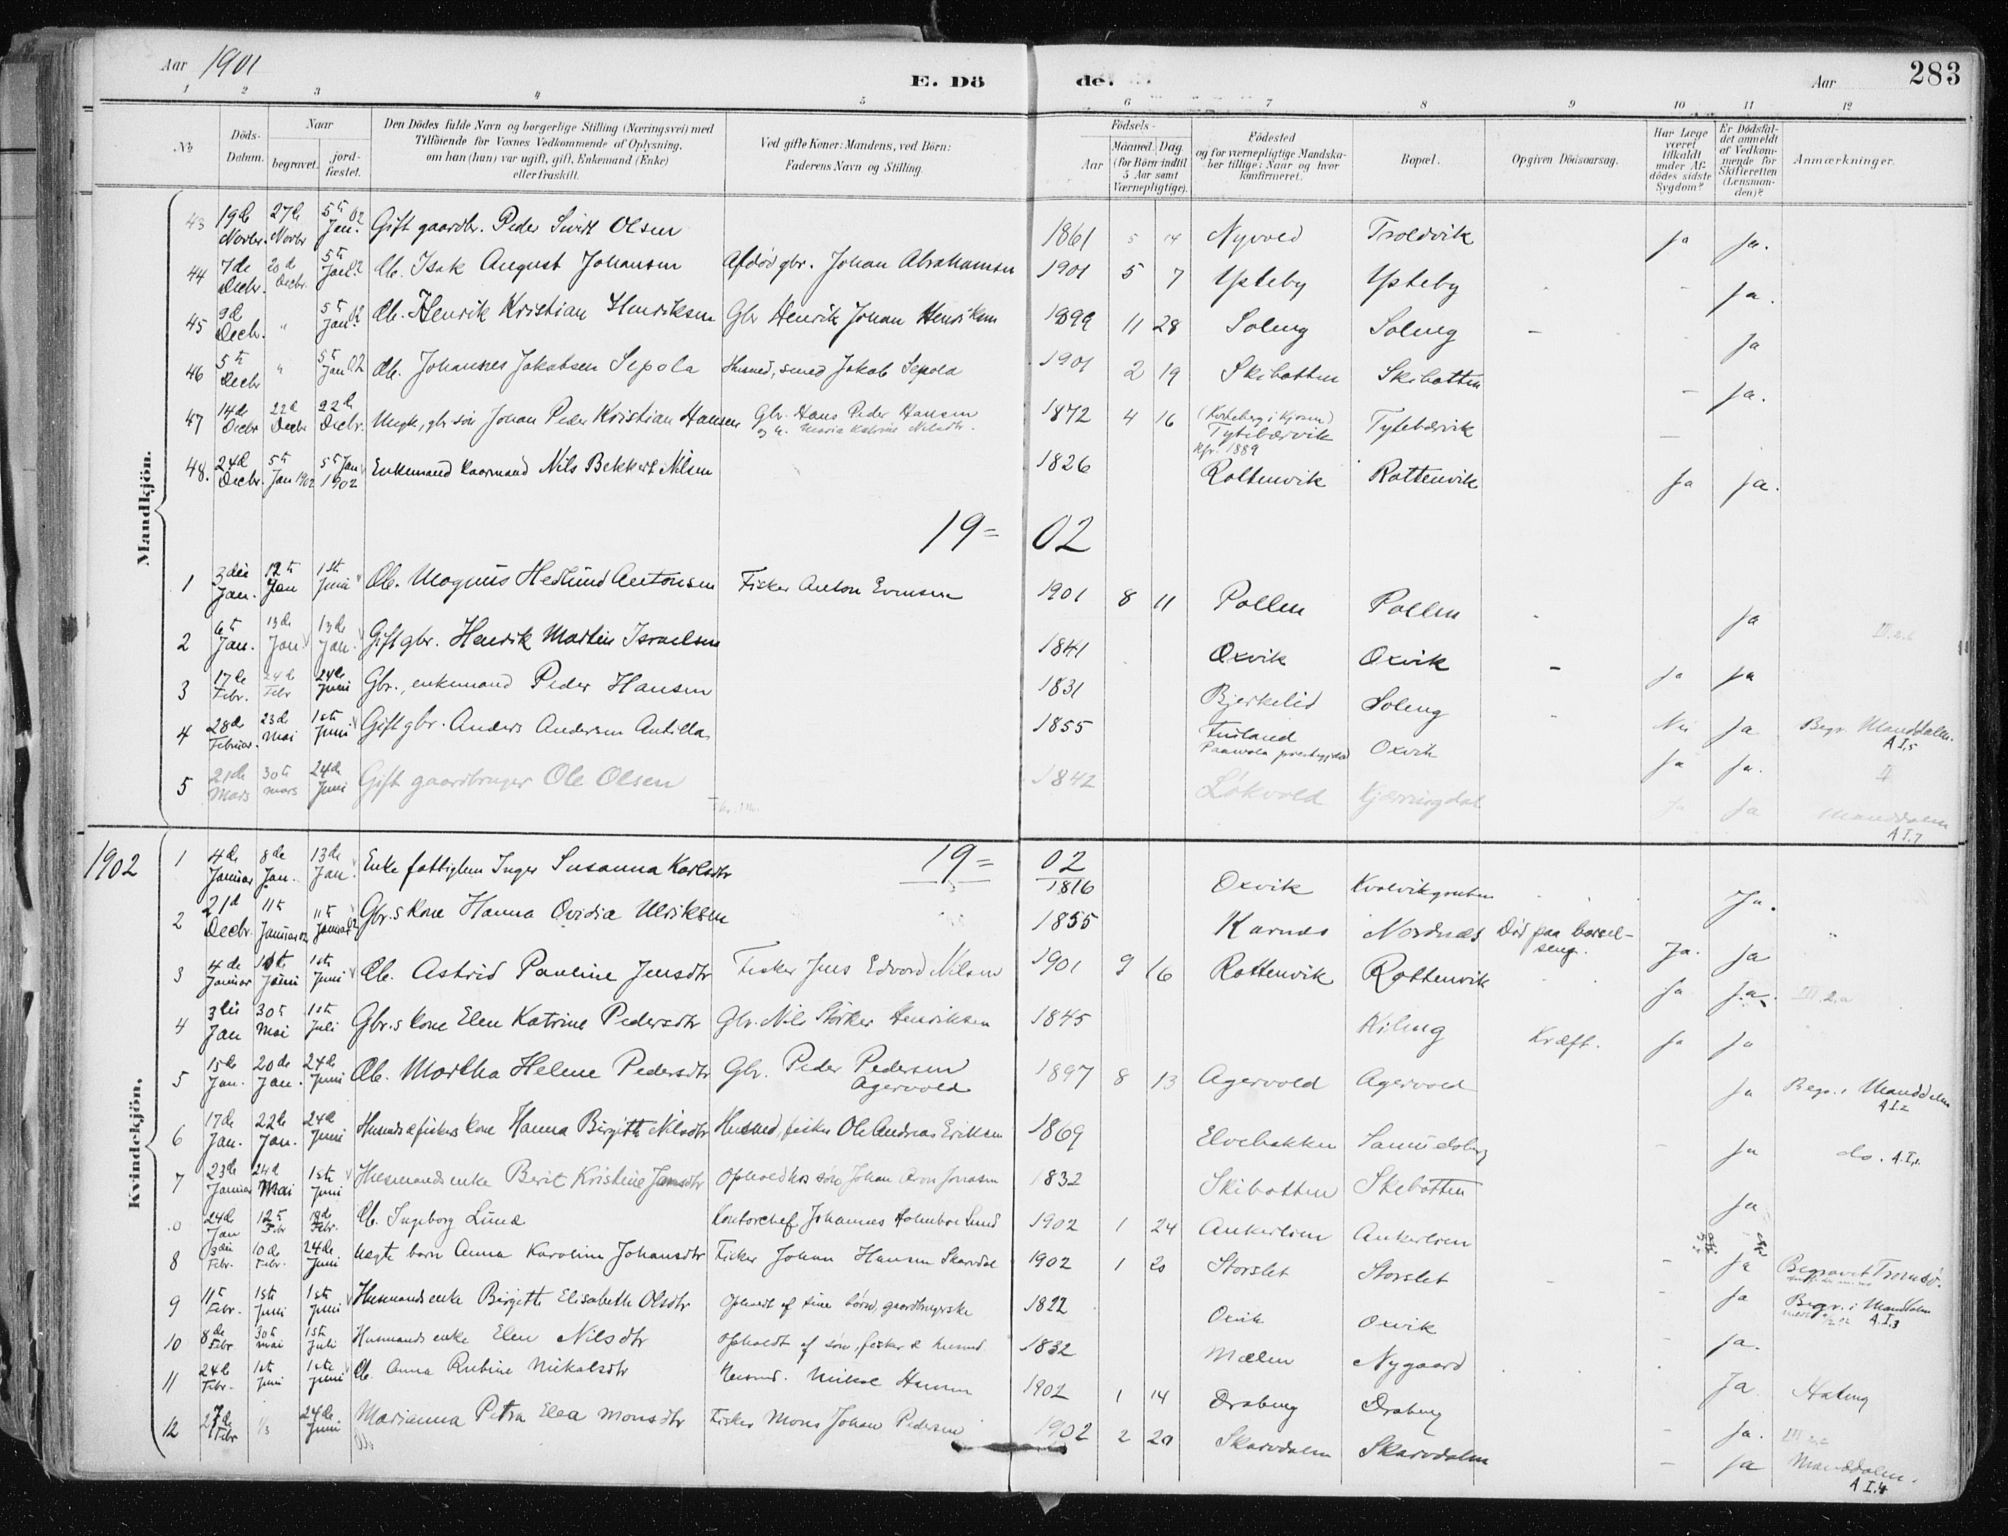 Aar 1901
E. Dö
de.
Aar
283
1 2 3 4 5 6 7 8 9 10 11 12
No.
Döds-Datum.
Naar
begravet.
jord-fæstet.
Den Dödes fulde Navn og borgerlige Stilling (Næringsvei) med
Tilföiende for Voxnes Vedkommende af Oplysning,
om han (hun) var ugift, gift, Enkemand (Enke)
eller fraskilt.
Ved gifte Koner: Mandens, ved Börn:
Faderens Navn og Stilling.
Födsels-
Aar
Maaned. Dag
(for Börn indtil
5 Aar samt
Værnepligtige).
Födested
og for værnepligtige Mandska-
ber tillige: Naar og hvor
konfirmeret.
Bopæl.
Opgiven Dödsaarsag.
Har Læge
været
tilkaldt
under Af-
dödes sidste
Sygdom?
Er Dödsfal-
det anmeldt
af Vedkom-
mende for
Skifteretten
(Lensman-
den)?
Anmærkninger.
Mandkjön.
43 19de Novbr. 27de Novbr 5te Jan. 02 Gift gaardbr. Peder Olsen 1861 5 14 Nyvold Troldvik ja ja.
44 7de Decbr. 20de Decbr. 5te Jan 02 Isak August Johansen Afdöd gbr. Johan Abrahamsen 1901 5 7 Ysteby Ysteby - ja.
45 9d Decb. " 5te Jan 02 Henrik Kristian Henriksen Gbr Henrik Johan Henriksen 1899 11 28 Soleng Soleng - ja
46 5te Decbr " 5te Jan 02 Johannes Jakobsen Sepola Husmd, smed Jakob Sepola 1901 2 19 Skibotten Skibotten - ja.
47 14de Decbr 22d Decbr 22de Decbr. Ungk., gbr sön Johan Peder Kristian Hansen Gbr. Hans Peder Hansen
og h. Maria Katrine Nilsdtr. 1872 4 16 Tyttebærvik Kfr. 1889 Tyttebærvik -
48. 24d Decbr. 5te Jan 1902 5te Jan 1902 Enkemand kaarmand Nils Bekkert Nilsen 1826 Rottenvik Rottenvik ja ja.
19= 02
1 3die Jan. 12te Jan 1ste Juni Magnus Hedlund Antonsen Fisker Anton Evensen 1901 8 11 Pollen Pollen ja
2 6te Jan. 13de Jan. 13de Jan. Gift gbr. Henrik Martin Israelsen 1841 Oxvik Oxvik - ja ja
3 17de Febr. 24de Febr 24de Juni Gbr., enkemand Peder Hansen 1831 Bjerkelid Soleng " Nei ja Begr. Manddalen.
A I,5
4 28de Februar. 23de Mai 1ste Juni Gift gbr. Anders Andersen Antilla 1855 Finland Oxvik ja ja.
5 21de Mars 30te mars 24de Juni Gift gaardbruger Ole Olsen 1842 Lökvold Kjærringdal ja ja Manddalen
A I,7
Kvindekjön.
1902 19= 02
1 4de Januar 8de Jan. 13de Jan. Enke fattiglem Inger Susanna Karlsdtr 1816 Oxvik Kvalvikgruben ja.
2 21d Decbr. 11te Januar 02 11te Januar 02 Gbr.s kone Hanna Ovidia Ulriksen 1855 Karnes Nordnæs Död paa barsel-
seng. Ja. ja
3 4de Januar 1ste Juni 1ste Juni Astrid Pauline Jensdtr Fisker Jens Edvard Nilsen 1901 9 16 Rottenvik Rottenvik ja ja. III.2.a
4 3die Jan 30te Mai 1ste Juli Gbr.s kone Elen Katrine Pedersdtr Gbr. Nils Störker Henriksen 1845 Kileng Kræft. ja ja
5 15de Jan. 20de Jan. 24de Juni Martha Helene Pedersdtr Gbr. Peder Pedersen
Agervold 1897 8 13 Agervold Agervold ja Begr. i Manddalen
A I,2
6 17de Jan. 22de Jan. 24de Juni Husmds & fiskers kone Hanna Birgitte Nilsdtr Husmd, fisker Ole Andreas Eriksen 1869 Elvebakken Samuelsberg - ja do. A.I,1.
7 23de Januar 24d Mai 1ste Juni Husmands enke Berit Kristine Jensdtr Ophold hos sön Johan Aron Jonasen 1832 Skibotten Skibotten ja
0 24de Jan 12te Febr 12de Febr. Ingeborg Lund Kontorchef Johannes Holmboe Lund 1902 1 24 Ankerlien Ankerlien Begravet Tromsö.
8 3die Febr. 10de Febr. 24de Juni Uegte barn Anna Karoline Johansdtr Fisker Johan Hansen Skarvdal 1902 1 20 Storslet Storslet - ja Begr. i Manddalen
A.I,3
9 11te Febr. 1ste Juni 1ste Juni Husmands enke Birgitte Elisabeth Olsdtr Opholdt af sine börn, 1822 Oxvik Oxvik ja
10 8de Febr. 30te mai 1ste Juli Husmands enke Elen Nilsdtr Opholdt af sön, fisker & husmd. 1832 Mælen Nygaard - ja.
11 24de Febr. 1ste Juni 1ste Juni Anna Rubine Nikolsdtr Husmd. Nikol Hansen 1902 1 14 Drabeng Drabeng Ja. Hateng
12 27de Febr 1/3 24de Juni Marianna Petra Elea Monsdtr Fisker Mons Johan Pedersen 1902 2 20 Skarvdalen Skarvdalen - ja Manddalen.
A I.4